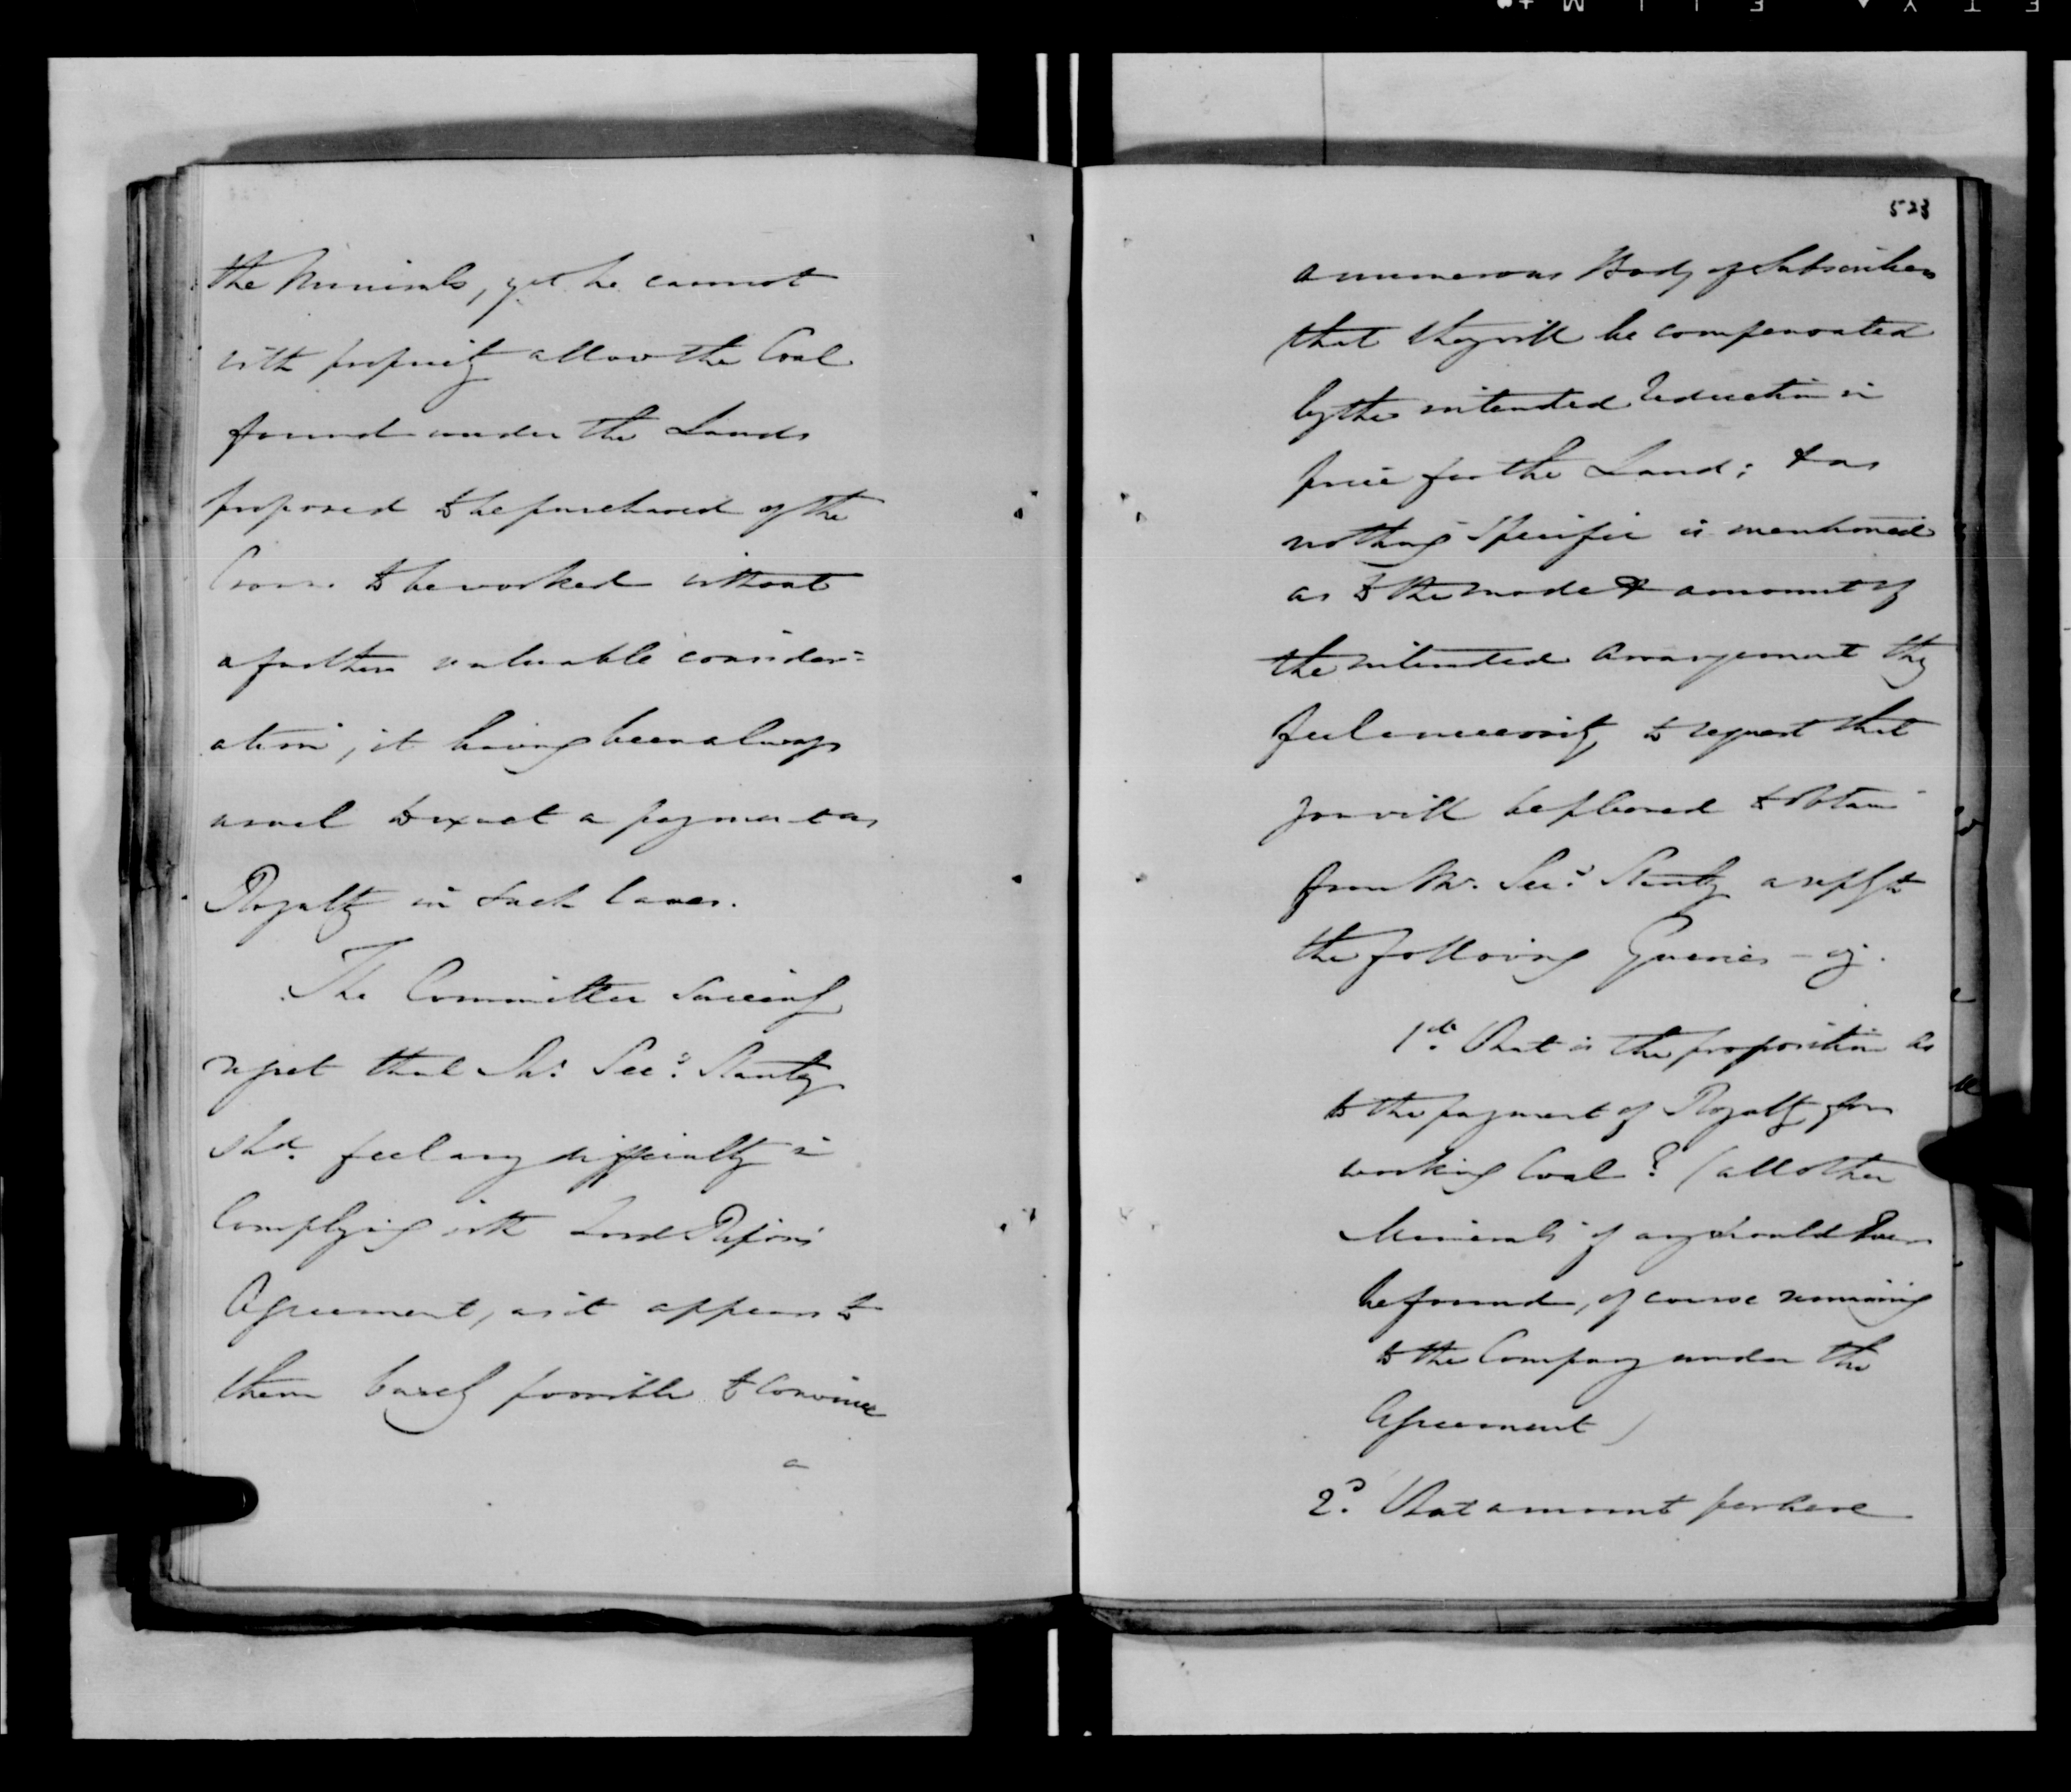 the Minerals, yet he cannot
with propriety allow the Coal
found under the Lands
proposed to be purchased of the
Crown to be worked without
a further valuable consider=
ation, it having been always
usual to exact a payment as
Royalty in such Cases.
The Committee sincerely
regret that Mr. Secy. Stanley
shd. feel any difficulty in
Complying with Lord Ripon's
Agreement, as it appears to
them barely possible to convince
a
523
a numerous Body of Subscribers
that they will be compensated
by the intended reduction in
price for the Land; & as
nothing specific is mentioned
as to the mode & amount of
the intended arrangement they
feel a necessity to request that
you will be pleased to obtain
from Mr. Secy. Stanley a reply to
the following Queries -
1st. What is the proposition as
to the payment of Royalty for
working Coal? (all other
Minerals if any should
be found, of course remaining
to the Company under the
Agreement)
2d. What amount per Acre